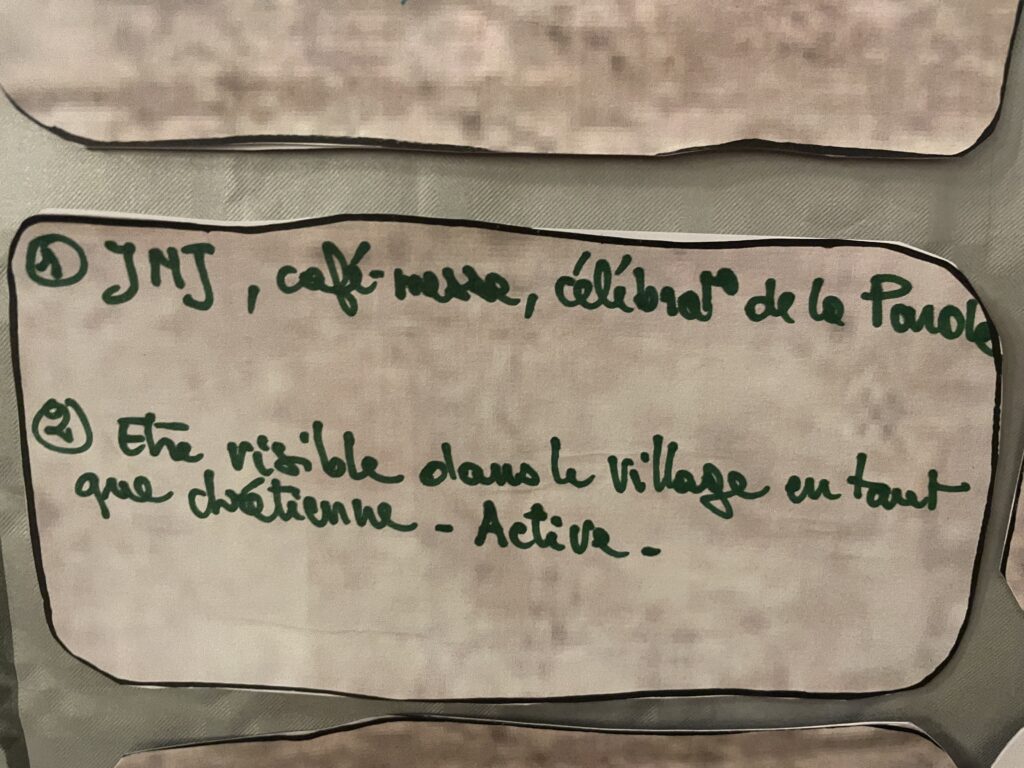 ① JMJ, café-messe, célébrat° de la Parole
② Etre visible dans le village en tant
que chrétienne - Active -